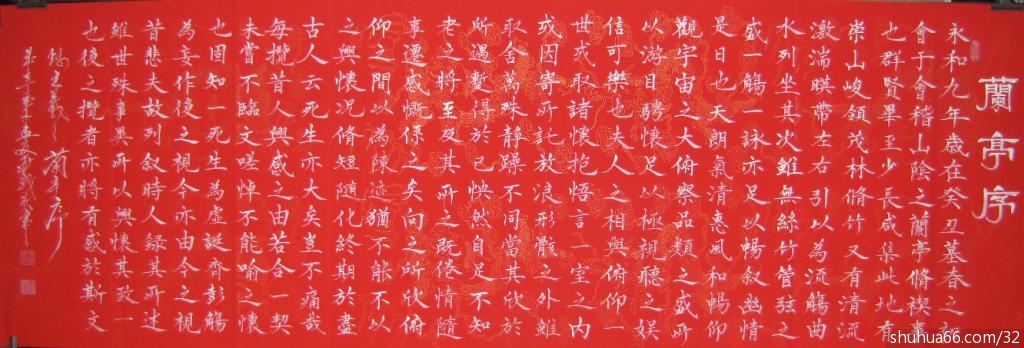 蘭亭序
永和九年歲在癸丑暮春之初
會于會稽山陰之蘭亭脩禊事
也群賢畢至少長咸集此地有
崇山峻領茂林脩竹又有清流
激湍暎帶左右引以為流觴曲
水列坐其次雖無絲竹管弦之
盛一觴一詠亦足以暢叙幽情
是日也天朗氣清惠風和暢仰
觀宇宙之大俯察品類之盛所
以游目騁懷足以極視聽之娱
信可樂也夫人之相與俯仰一
世或取諸懷抱悟言一室之内
或因寄所託放浪形骸之外雖
取舍萬殊静躁不同當其欣於
所遇暫得於己怏然自足不知
老之將至及其所之既倦情隨
事遷感慨係之矣向之所欣俯
仰之間以為陳迹猶不能不以
之興懷况脩短隨化終期於盡
古人云死生亦大矣豈不痛哉
每攬昔人興感之由若合一契
未嘗不臨文嗟悼不能喻之懷
也固知一死生為虚誕齊彭觴
為妄作後之視今亦由今之視
昔悲夫故列叙時人録其所述
雖世殊事異所以興懷其致一
也後之攬者亦將有感於斯文
王羲之蘭亭序
shuhua66.com/32